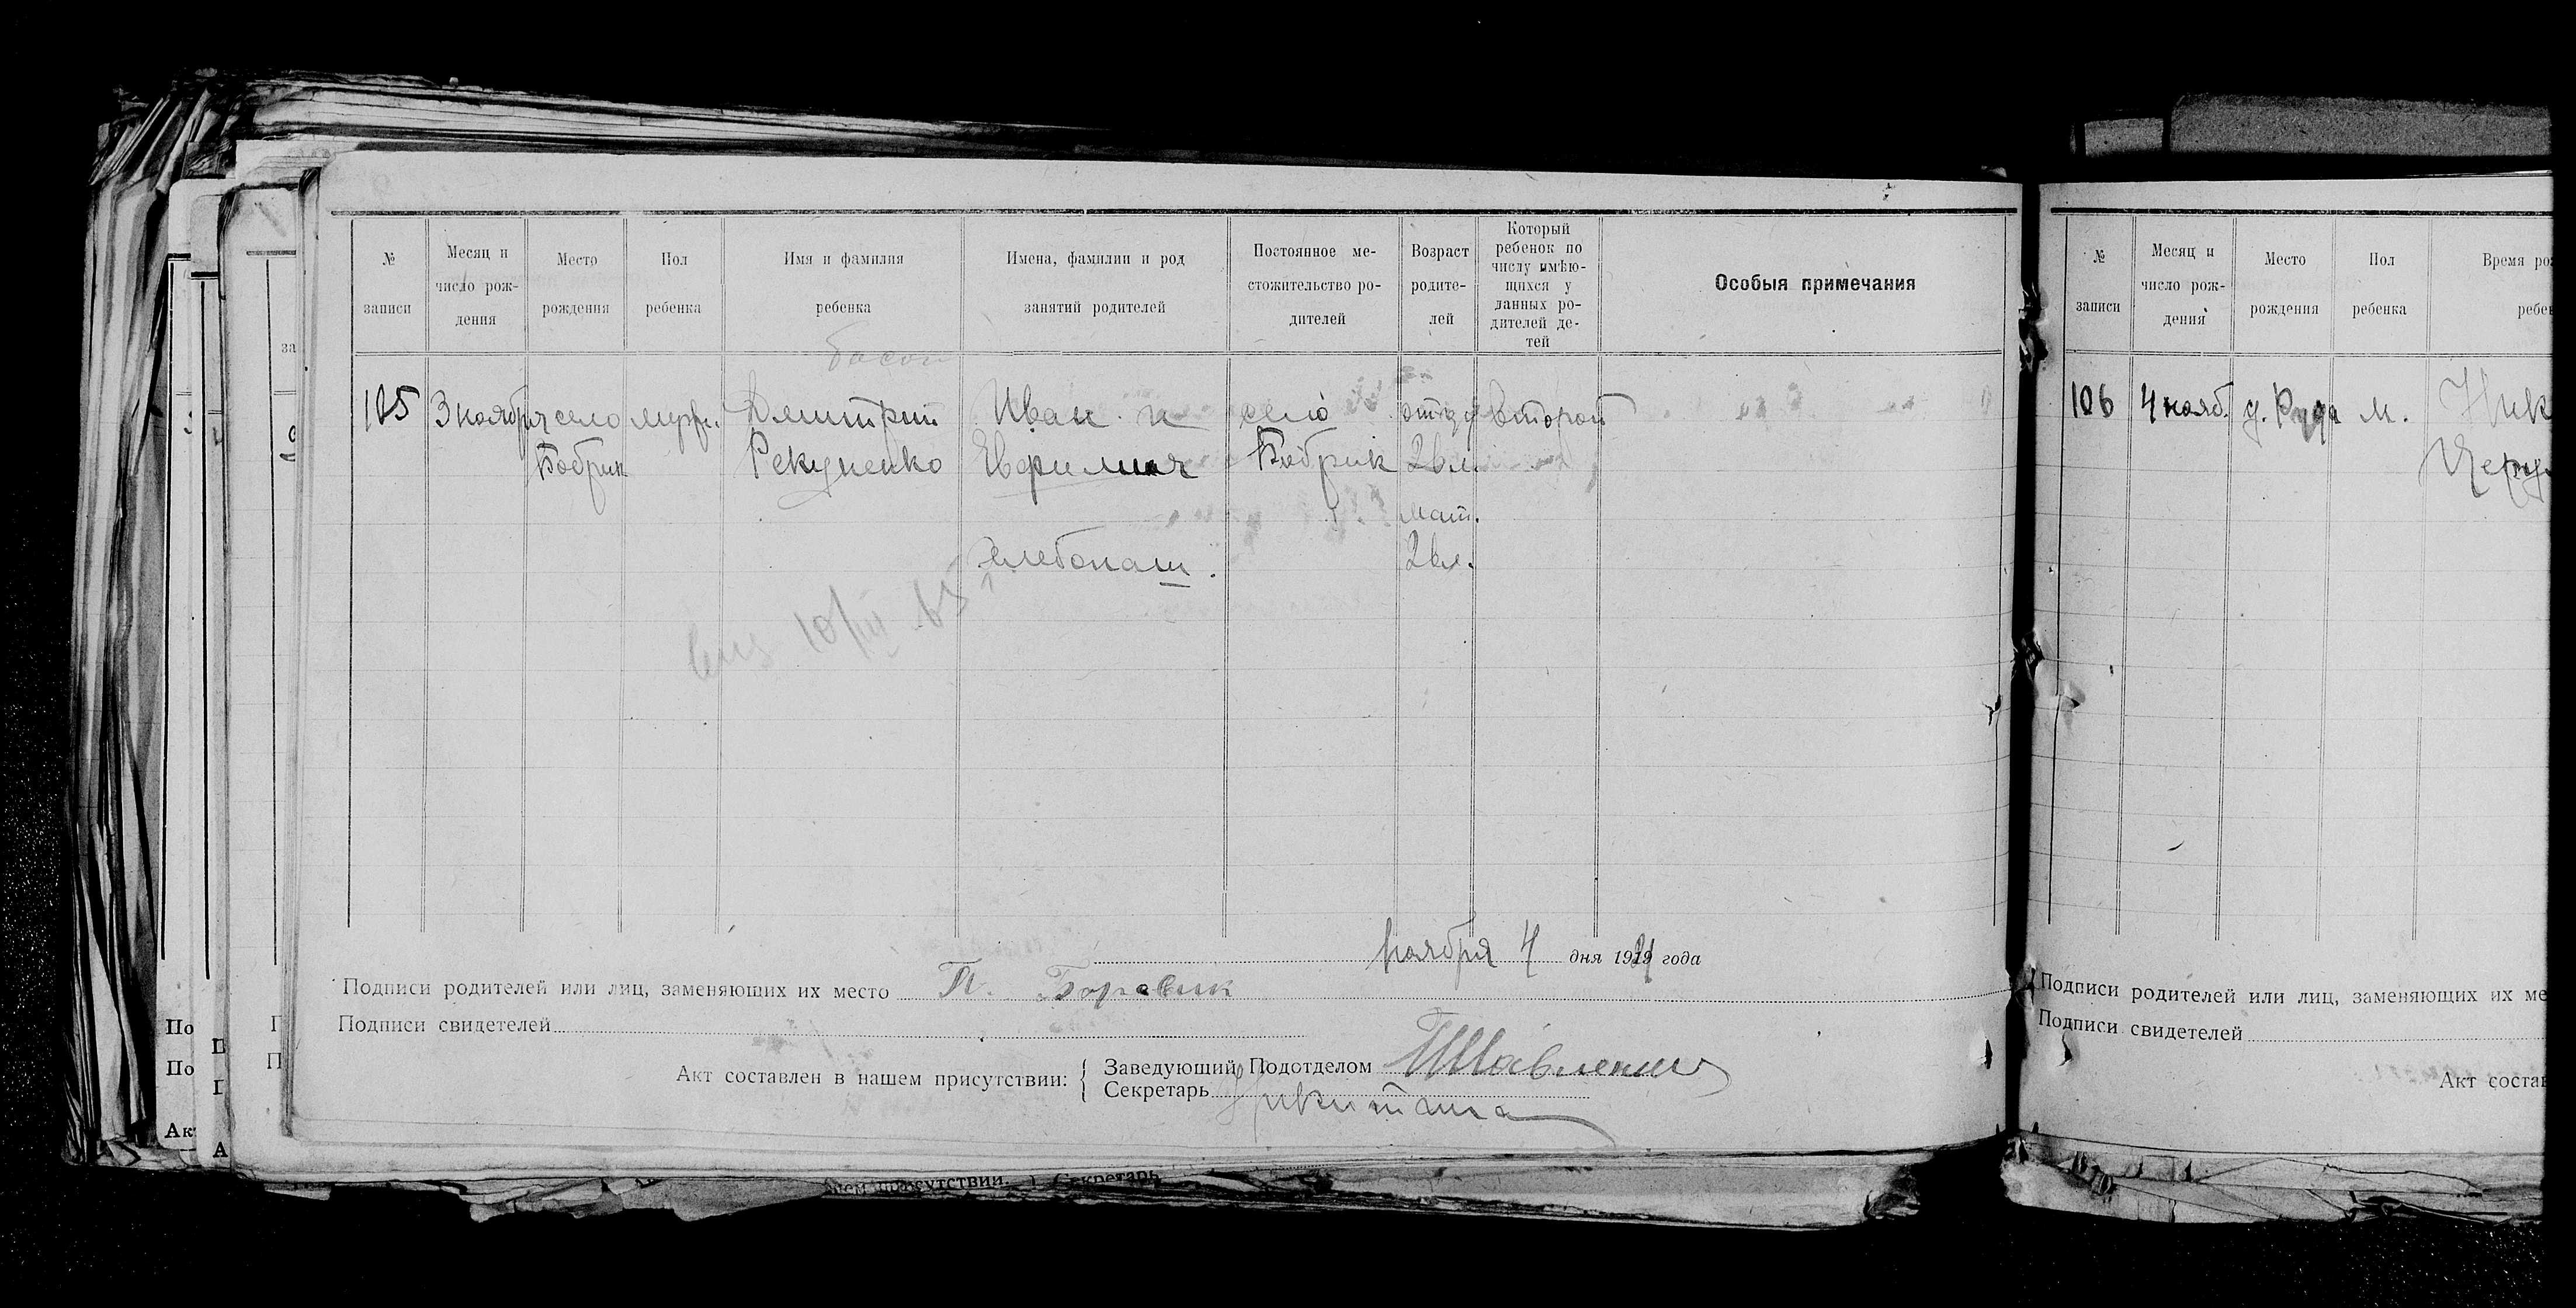 № записи
Месяц и число рож-
дения
Место рождения
Пол ребенка
Имя и фамилия ребенка
Имена, фамилии и род занятий родителей
Постоянное ме-
стожительство ро-
дителей
Возраст родите-
лей
Который
ребенок по
числу имѣю-
щихся у
данных ро-
дителей де-
тей
Особыя примечания
105 3 ноября село муж. Дмитрий Иван и село отцу второй
Бобрик Рекуненко Евфимия Бобрик 26 л.
мат.
хлебопаш. 26 л.
10/III 65
ноября 4 дня 1921 года
Подписи родителей или лиц, заменяющих их место П. Боровик
Подписи свидетелей
Акт составлен в нашем присутствии:
Заведующий Подотделом
Секретарь
№ записи
Месяц и число рож-
дения
Место рождения
Пол ребенка
Время
106 4 нояб. д. Руда м. Ник
Подписи родителей или лиц, заменяющих их ме
Подписи свидетелей
Акт состав
нем присутствии. Секретарь